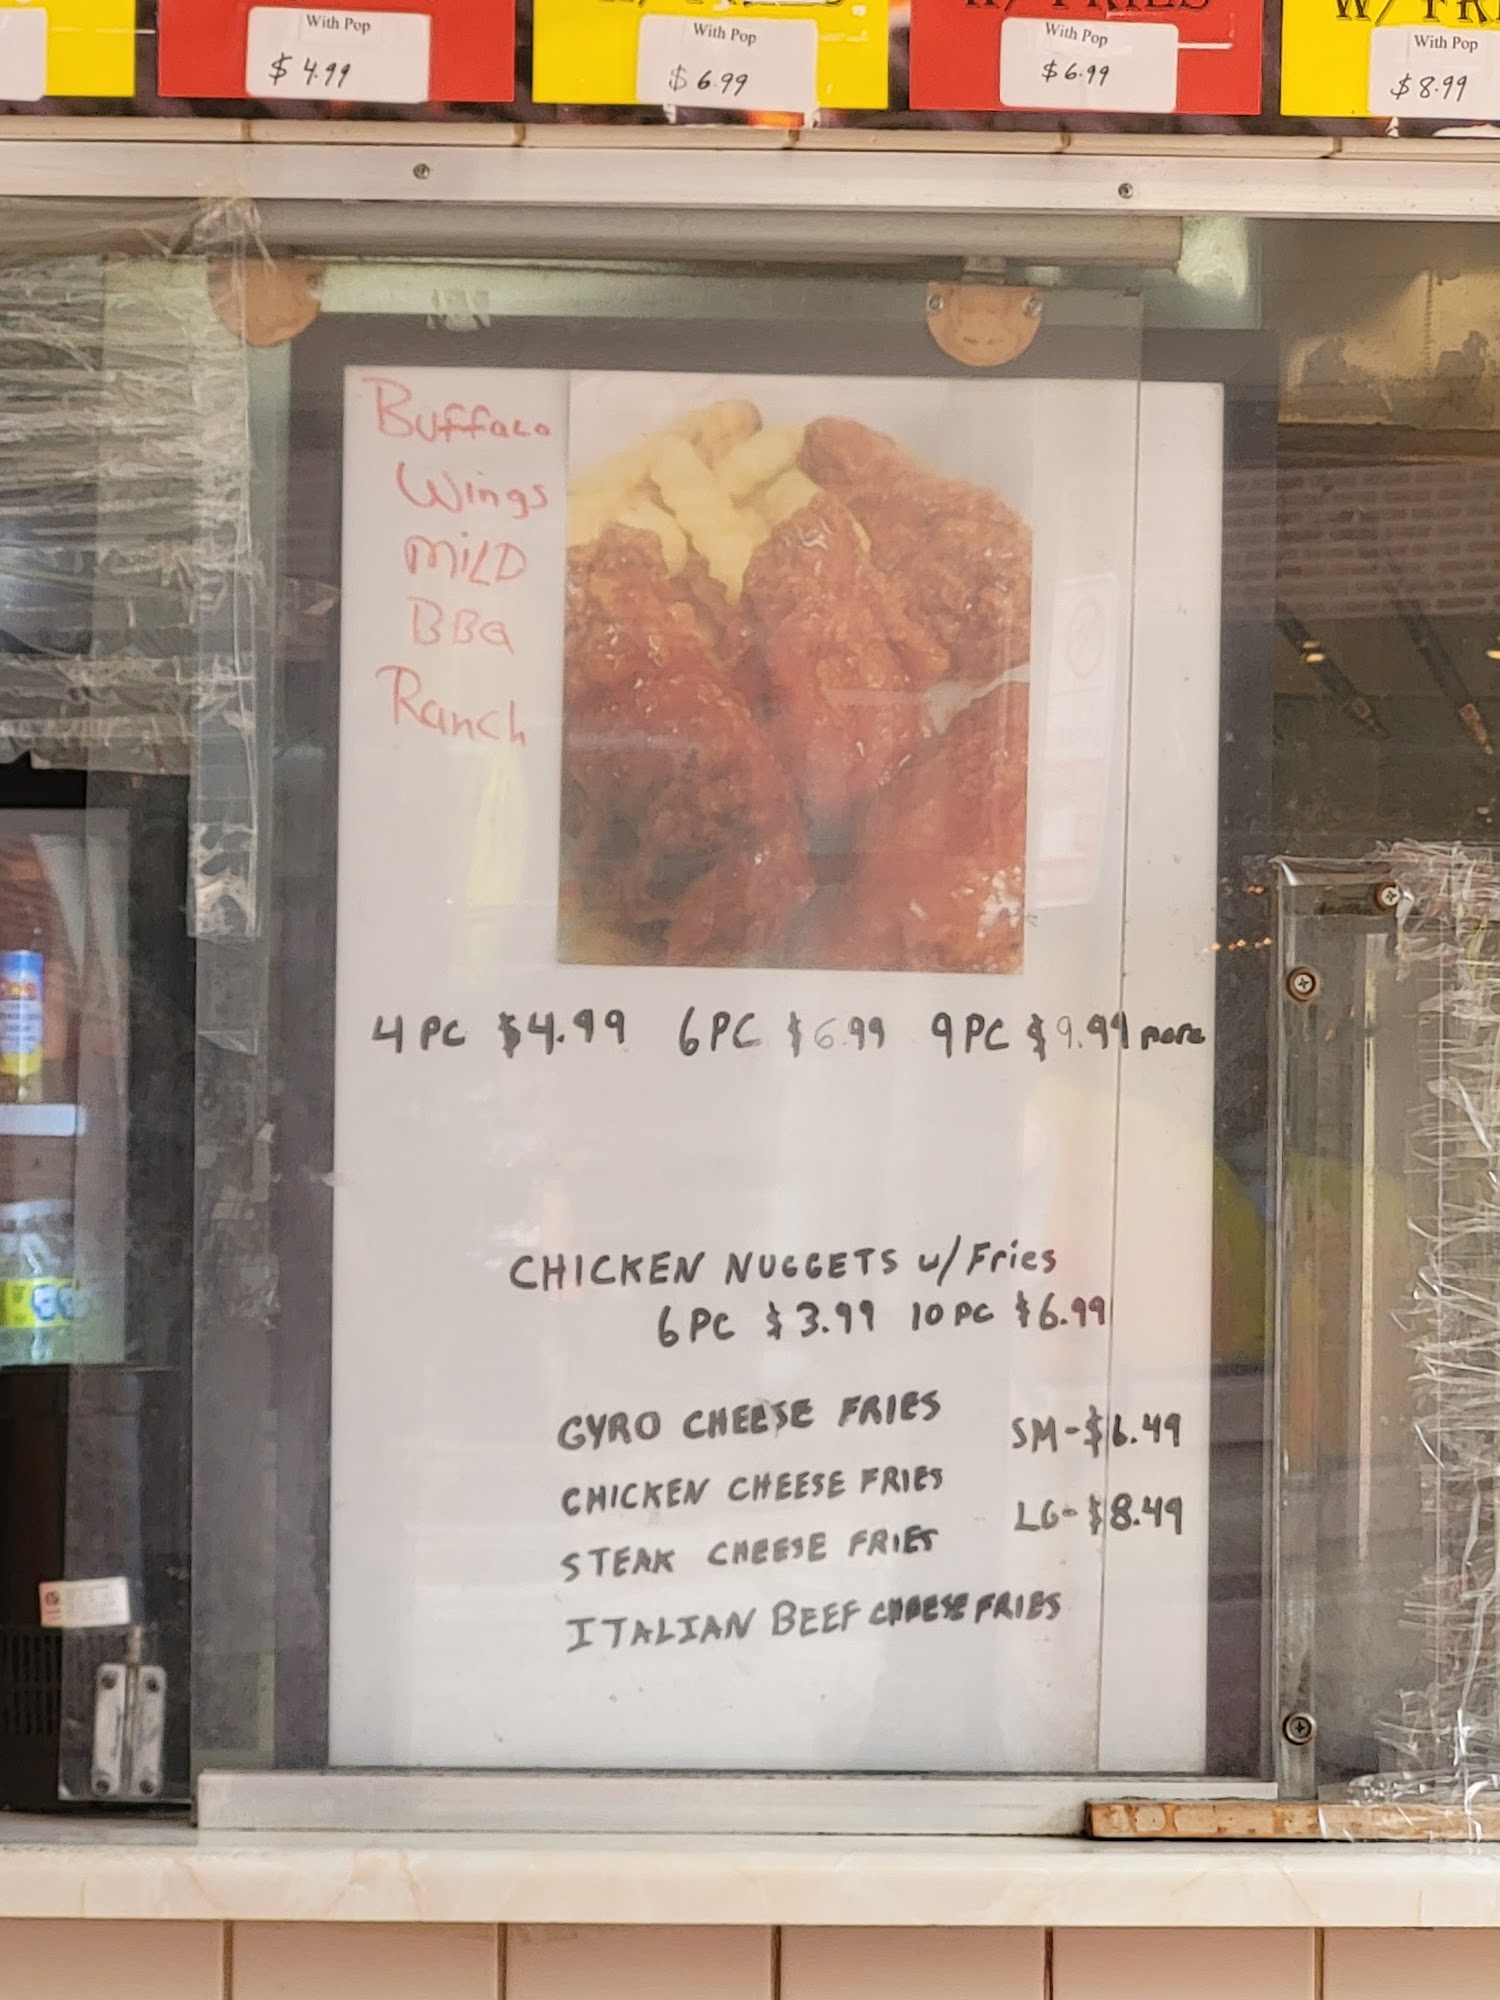 With Pop
$ 4.99
With Pop
$ 6.99
With Pop
$ 6.99
W/ FRI
With Pop
$ 8.99
Buffalo
Wings
MILD
BBQ
Ranch
4 PC $4.99 6 PC $6.99 9 PC $9.99 more
CHICKEN NUGGETS w/ Fries
6 PC $3.99 10 PC $6.99
GYRO CHEESE FRIES SM-$6.49
CHICKEN CHEESE FRIES
LG-$8.49
STEAK CHEESE FRIES
ITALIAN BEEF CHEESE FRIES